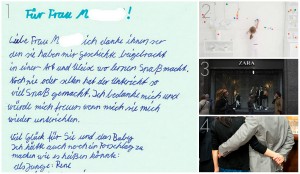 1
Für Frau M !
Liebe Frau M ich danke ihnen, den
den sie haben mir Geschichte beigebracht
in einer Art und Weise wo lernen Spaß macht.
Noch nie oder selten hat der Unterricht so
viel Spaß gemacht. Ich bedanke mich und
würde mich freuen wenn mich sie mich
wieder unterrichten.
Viel Glück für Sie und das Baby
Ich hätte auch noch ein Vorschlag zu
machen wie es heißen könnte:
als Junge: René
2
3
ZARA
4